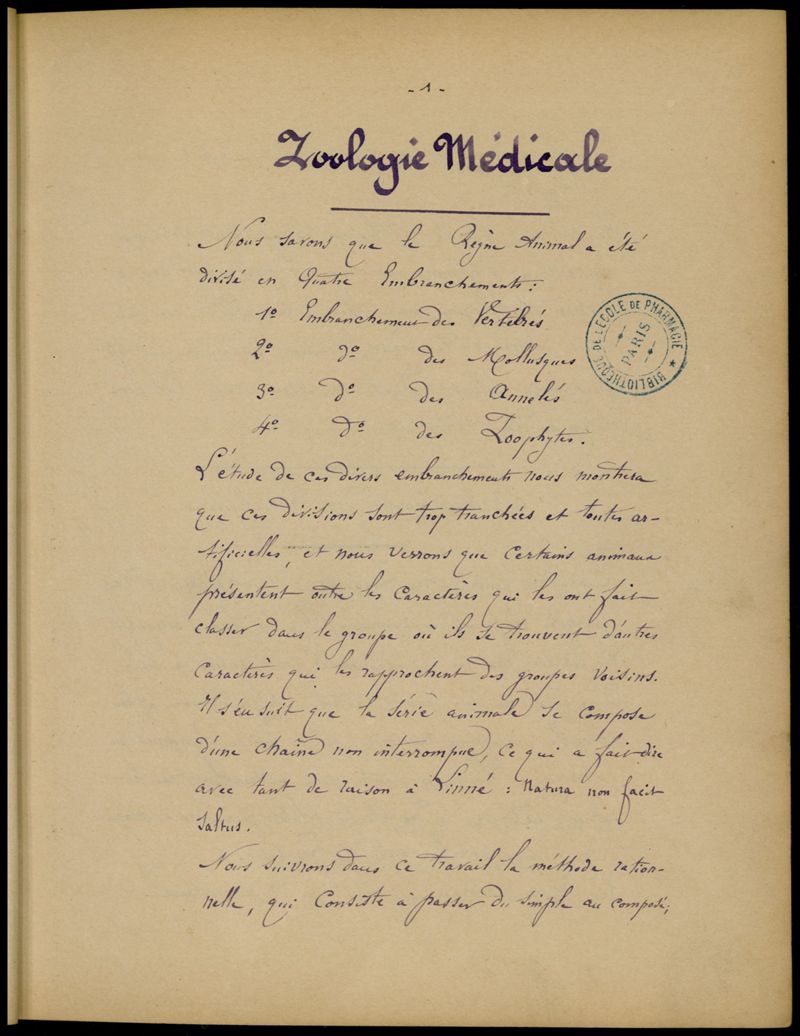 - 1 -
Zoologie Médicale
Nous savons que le Règne Animal a été
divisé en Quatre Embranchements :
1º Embranchement des Vertébrés
2º dº des Mollusques
3º dº des Annelés
4º dº des Zoophytes.
L'étude de ces divers embranchements nous montrera
que ces divisions sont trop tranchées et toutes ar-
tificielles, et nous verrons que certains animaux
présentent outre les caractères qui les ont fait
classer dans le groupe où ils se trouvent d'autres
caractères qui les rapprochent des groupes voisins.
Il s'en suit que la série animale se compose
d'une chaîne non interrompue, ce qui a fait dire
avec tant de raison à Linné : Natura non facit
saltus.
Nous suivrons dans ce travail la méthode ration-
nelle, qui consiste à passer du simple au composé;
BIBLIOTHÈQUE DE L'ECOLE DE PHARMACIE
PARIS